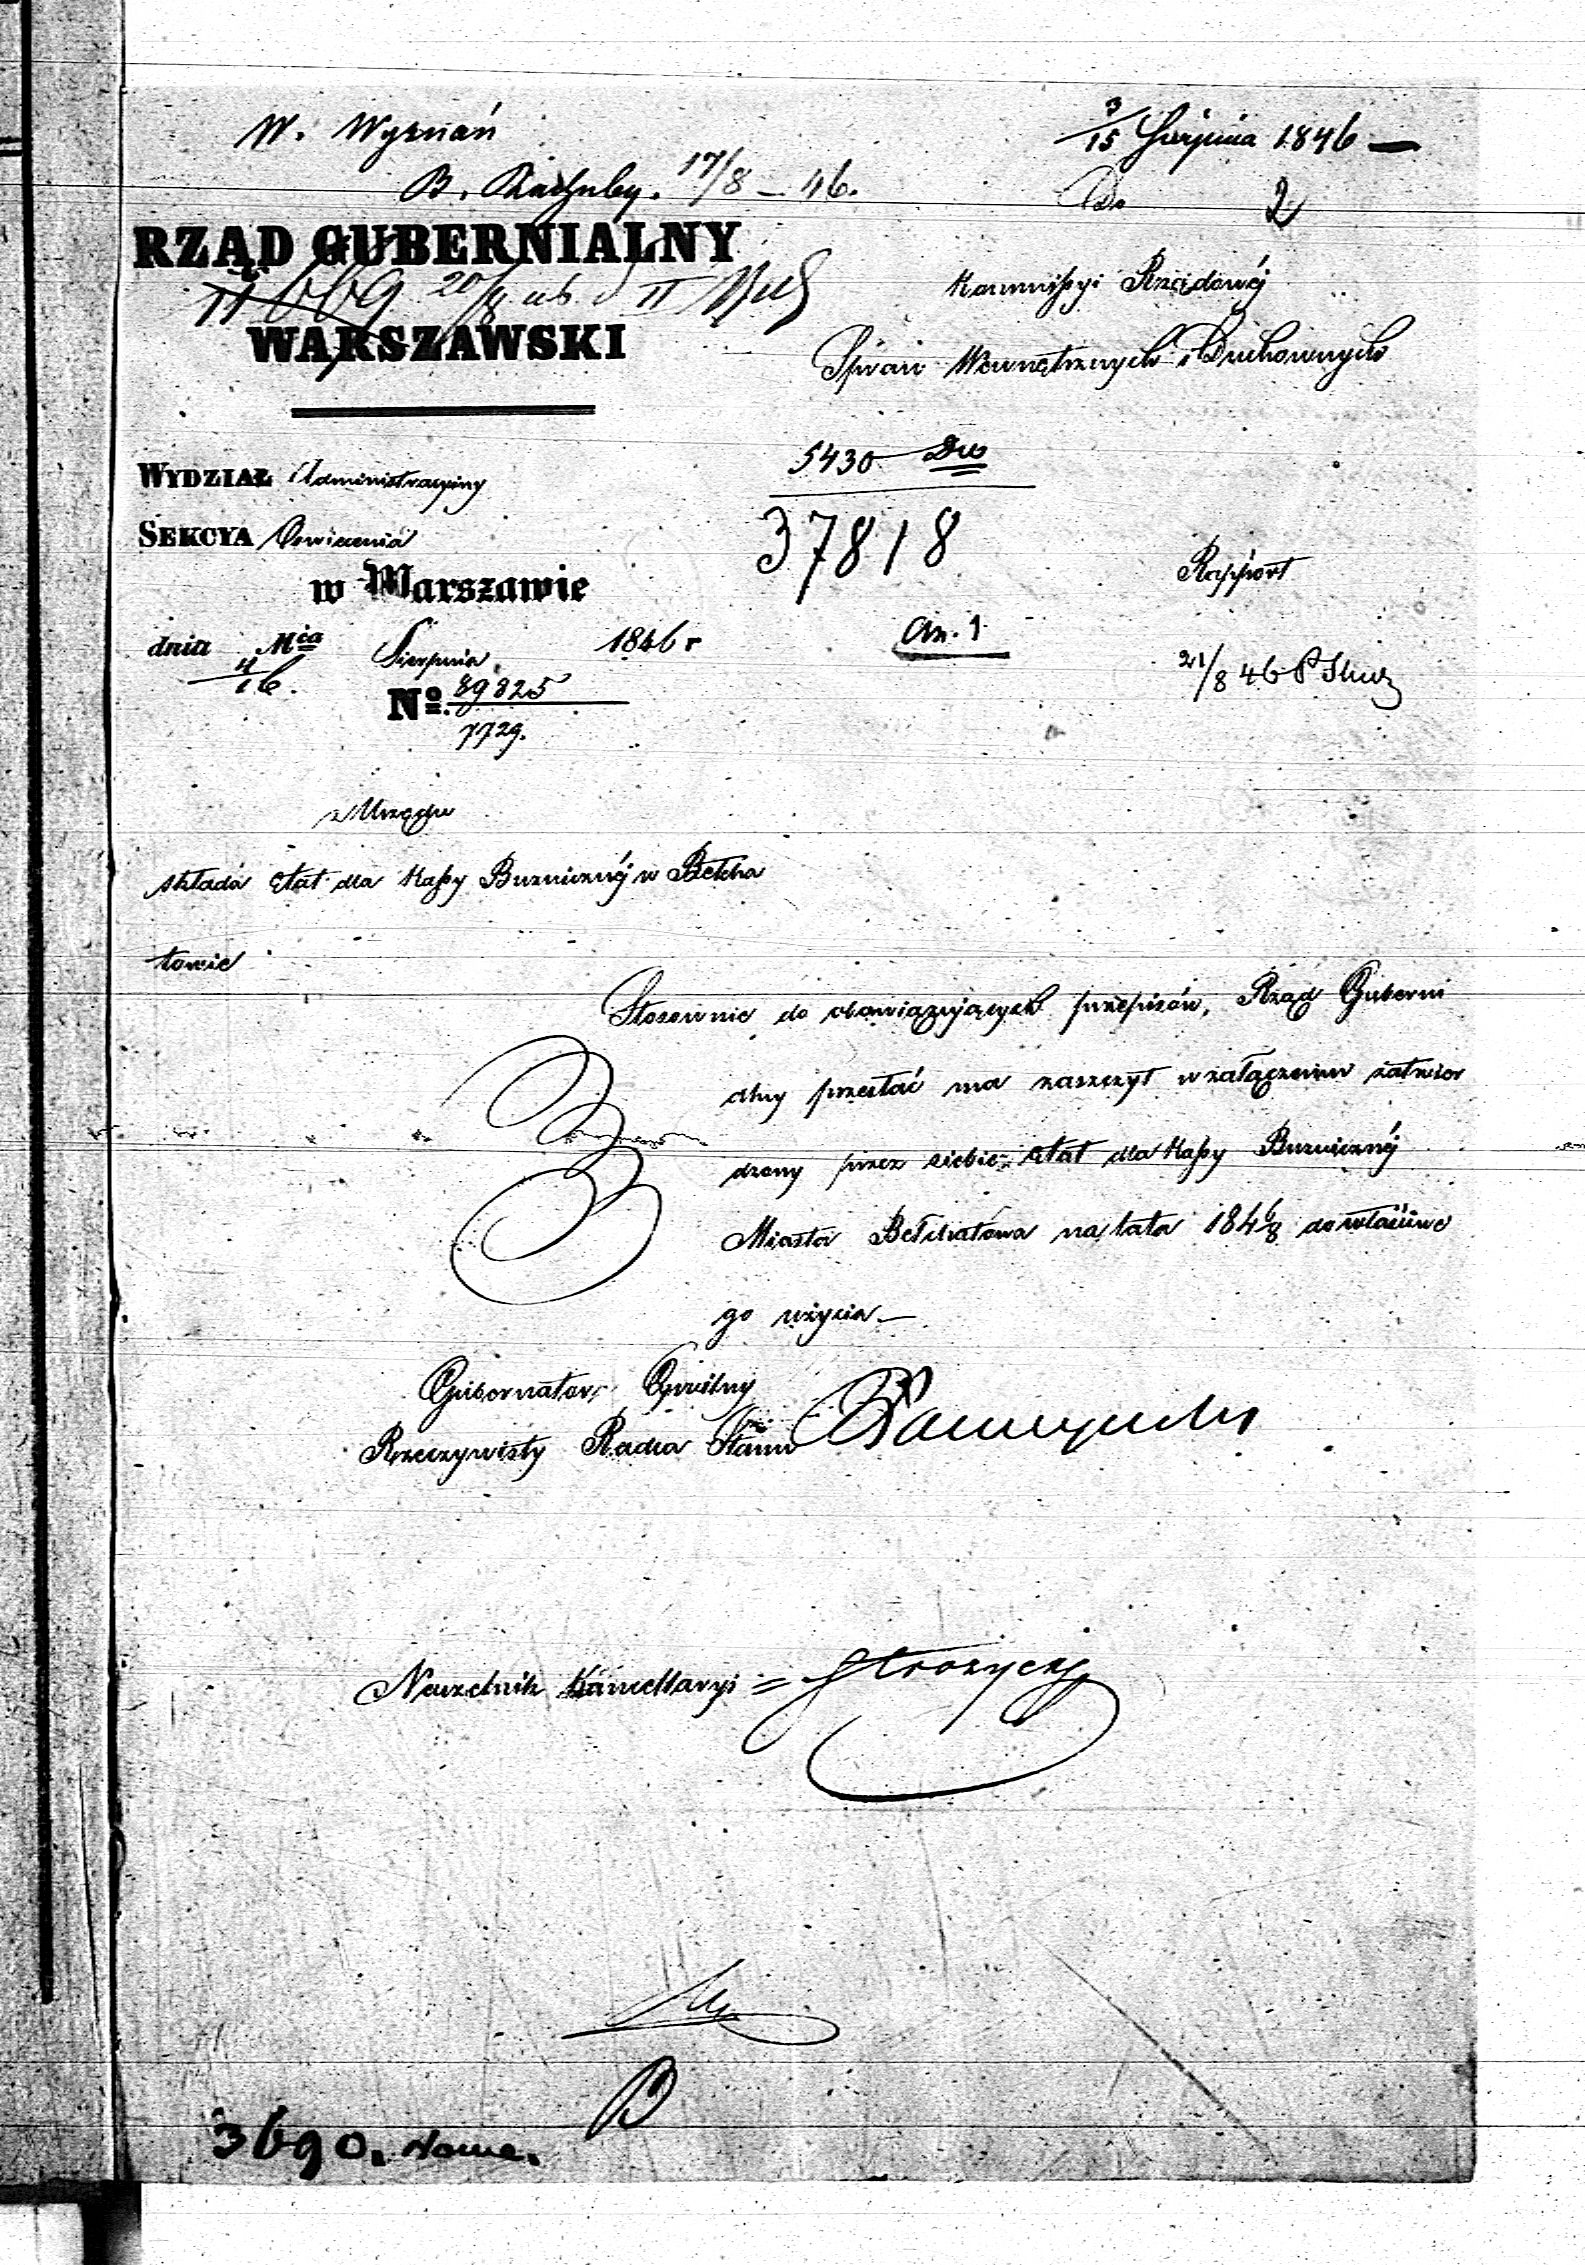 W. Wyznań
3/15 Sierpnia 1846 —
B. Rachuby. 17/8 – 46.
Do
2
RZĄD GUBERNIALNY
WARSZAWSKI
Kommissyi Rządowéj
Spraw Wewnętrznych i Duchownych
5430
WYDZIAŁ Administracyiny
SEKCYA Oswiecenia
37818
w Warszawie
Rapport
dnia 4/16. Mca Sierpnia 1846 r
An. 1
21/8 46
No. 89825
7729.
z Urzędu
składa etat dla Kassy Buznicznéj w Bełcha
towie
Stosownie do obowiązujących przepisów, Rząd Guberni
alny przesłać ma zaszczyt w załączeniu zatwier
dzony przez siebie etat dla Kassy Buznicznéj
Miasta Bełchatowa na lata 1846/8 do właściwe
go użycia —
Gubernator Cywilny
Rzeczywisty Radca Stanu
Naczelnik Kancellaryi =
3690.